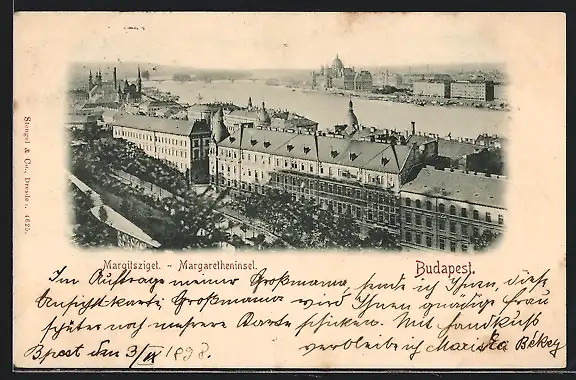 Stengel & Co., Dresden. 4625.
Margitsziget. - Margaretheninsel.
Budapest.
Im Auftrage meiner Großmama, sende ich Ihnen, diese
Ansichtskarte Großmama wird Ihnen gnädige Frau
später noch mehrere Karte schicken. Mit Handkuß
verbleibe ich Mariska Békey
Bpest den 3/IX 1898.